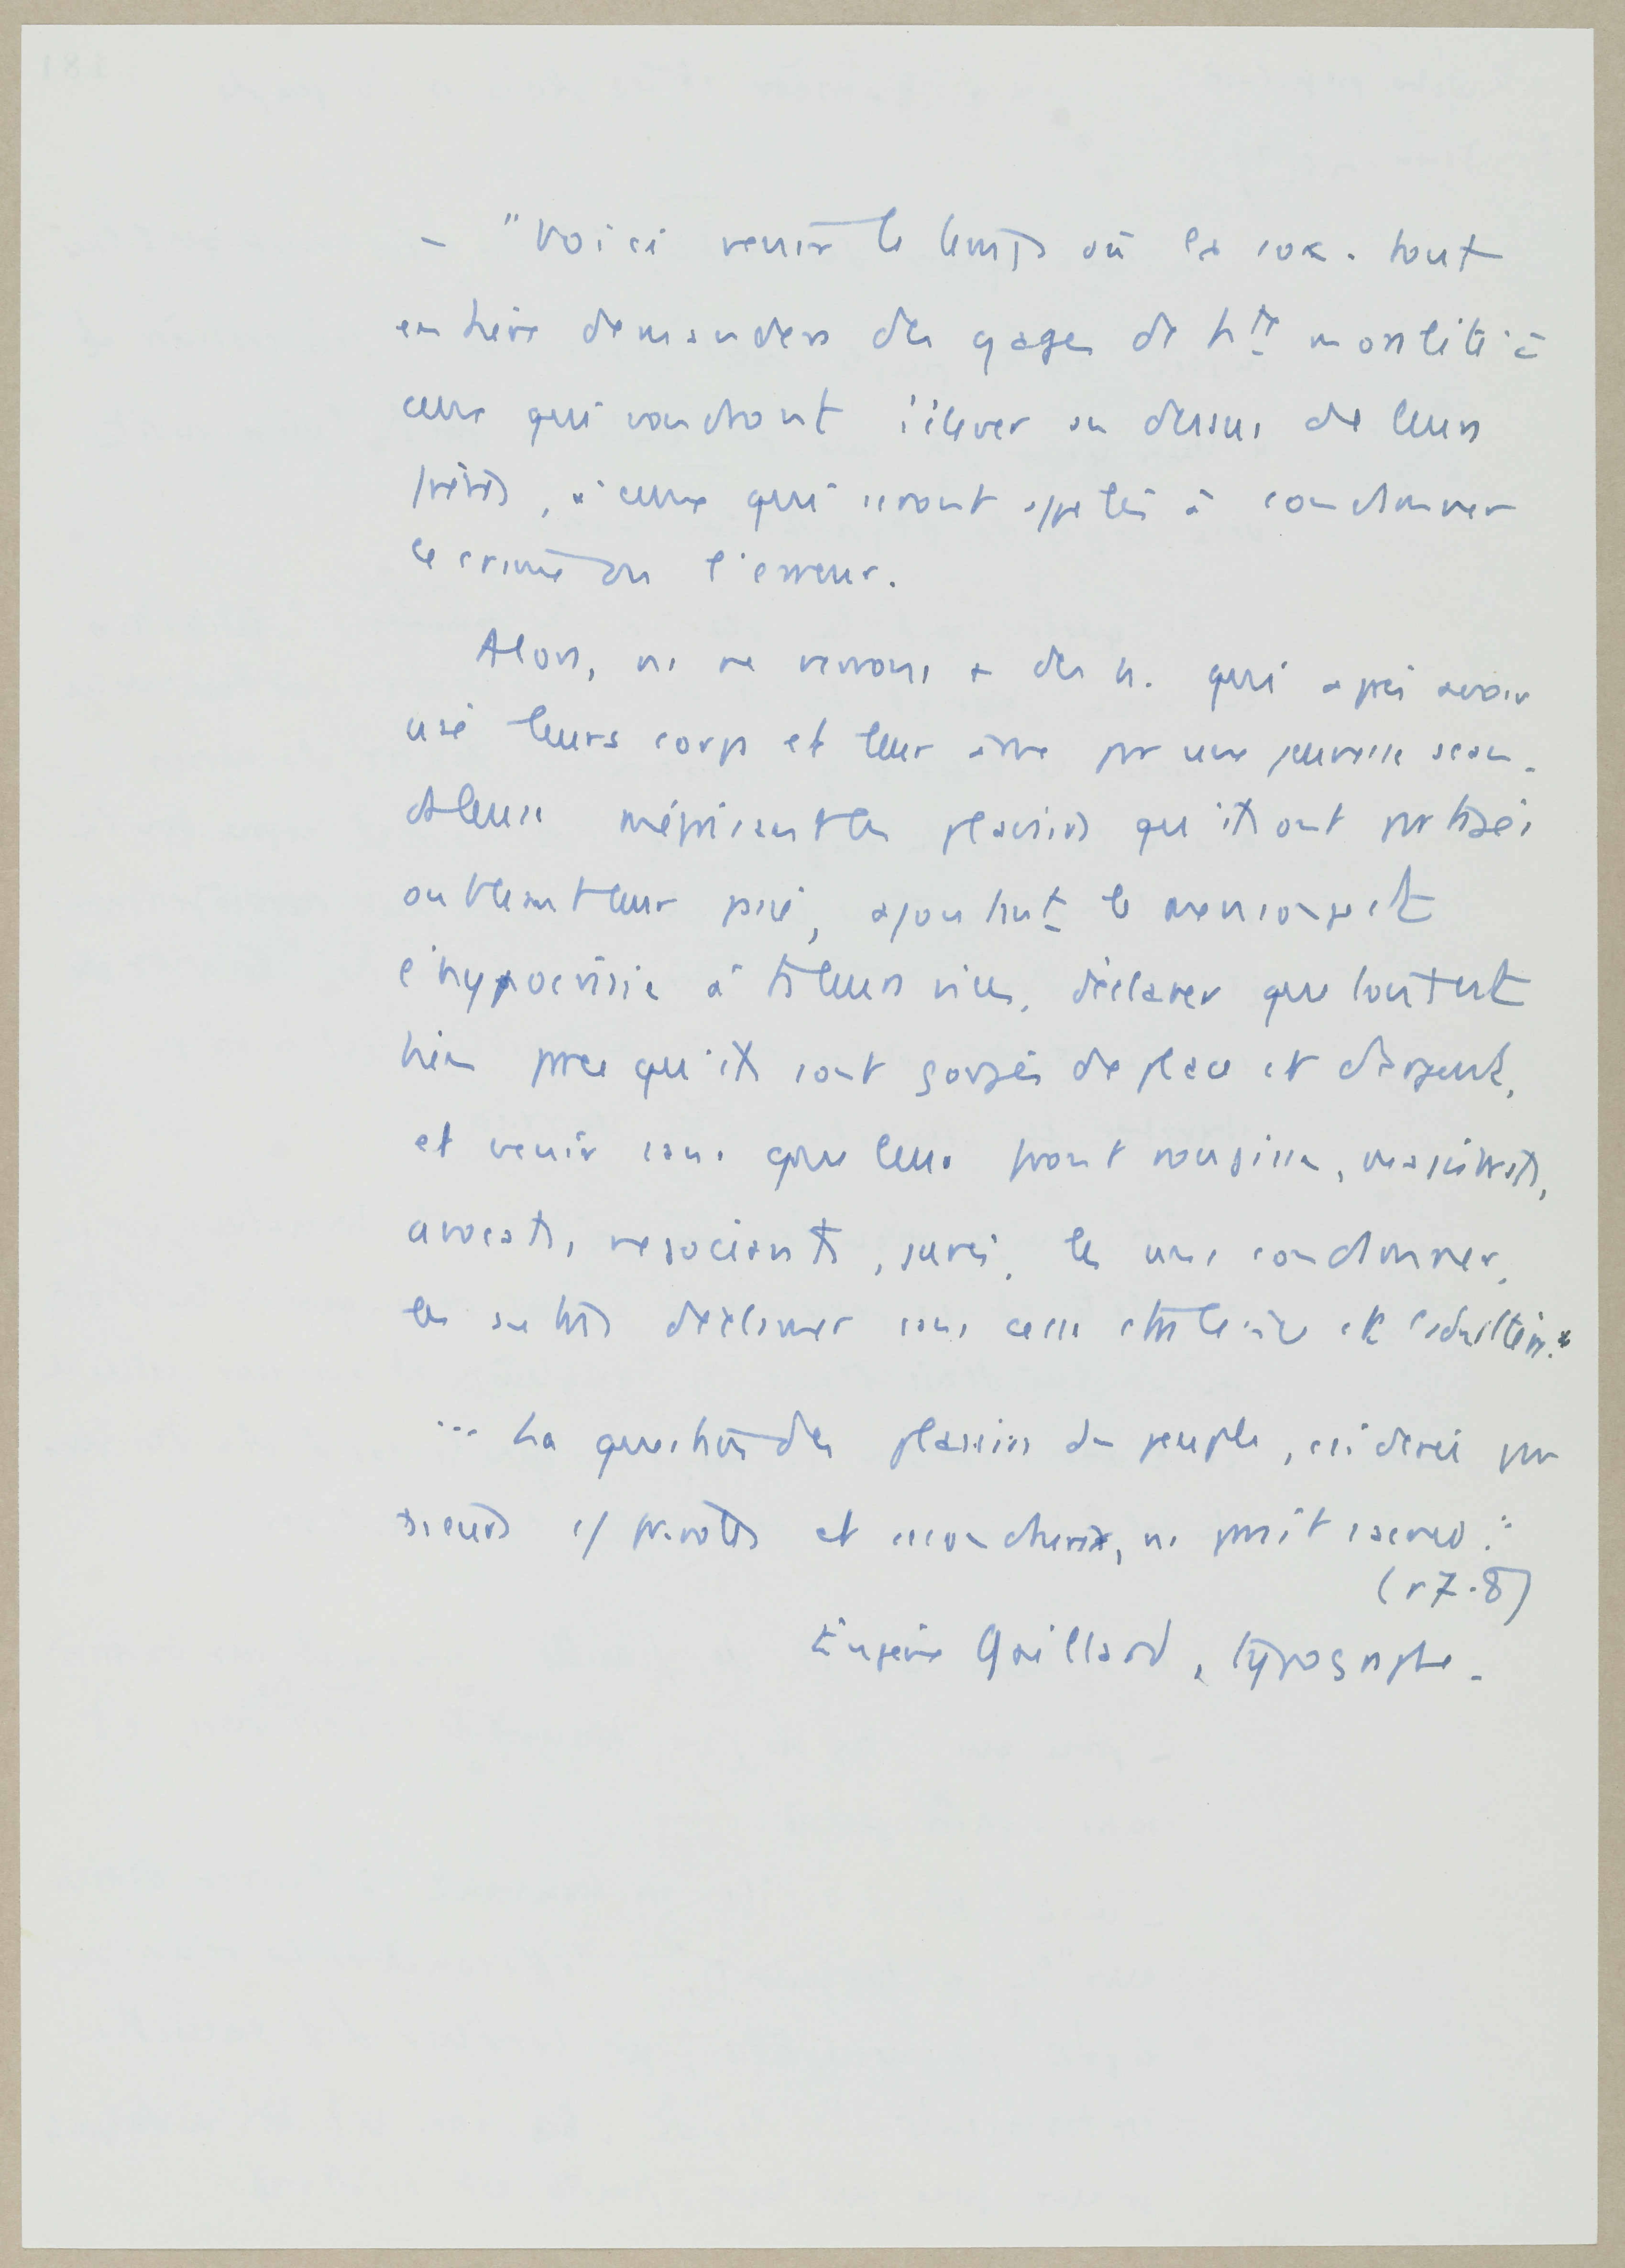 - "Voici venir le temps où la soc. tout
entière demandera des gages de hte moralité à
ceux qui voudront s'élever au dessus de leurs
frères, à ceux qui seront appelés à condamner
le crime ou l'erreur.
Alors, ns ne verrons + des h. qui après avoir
usé leurs corps et leur âme pr une jeunesse scan-
daleuse méprisant les plaisirs qu'ils ont partagés
oubliant leur passé, ajoutant le mensonge et
l'hypocrisie à ts leurs vices, déclarer que tout est
bien parce qu'ils sont gorgés de place et d'argent,
et venir sans que leur front rougisse, magistrats,
avocats, négociants, jurés, les uns condamner,
les autres déclamer sans cesse
... La question des plaisirs du peuple, considérée par
c/ frivole et ns paraît sacrée."
(17.8)
Eugène Gaillard, typographe.